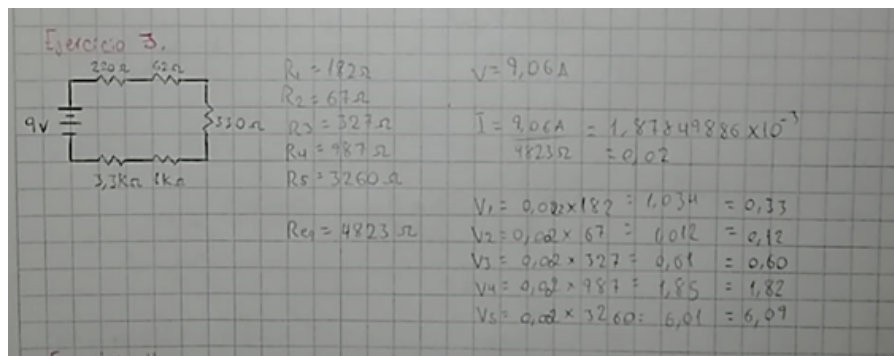 Ejercicio 3.
220Ω 62Ω
9V
330Ω
3,3KΩ 1KΩ
R1 = 182Ω
R2 = 67Ω
R3 = 327Ω
R4 = 987Ω
R5 = 3260Ω
Req = 4823Ω
V = 9,06A
I = 9,06A / 4823Ω = 1,87849886 x10⁻³
= 0,02
V1 = 0,002 x 182 = 1,034 = 0,33
V2 = 0,002 x 67 = 0,012 = 0,12
V3 = 0,002 x 327 = 0,61 = 0,60
V4 = 0,02 x 987 = 1,85 = 1,82
V5 = 0,002 x 3260 = 6,01 = 6,09